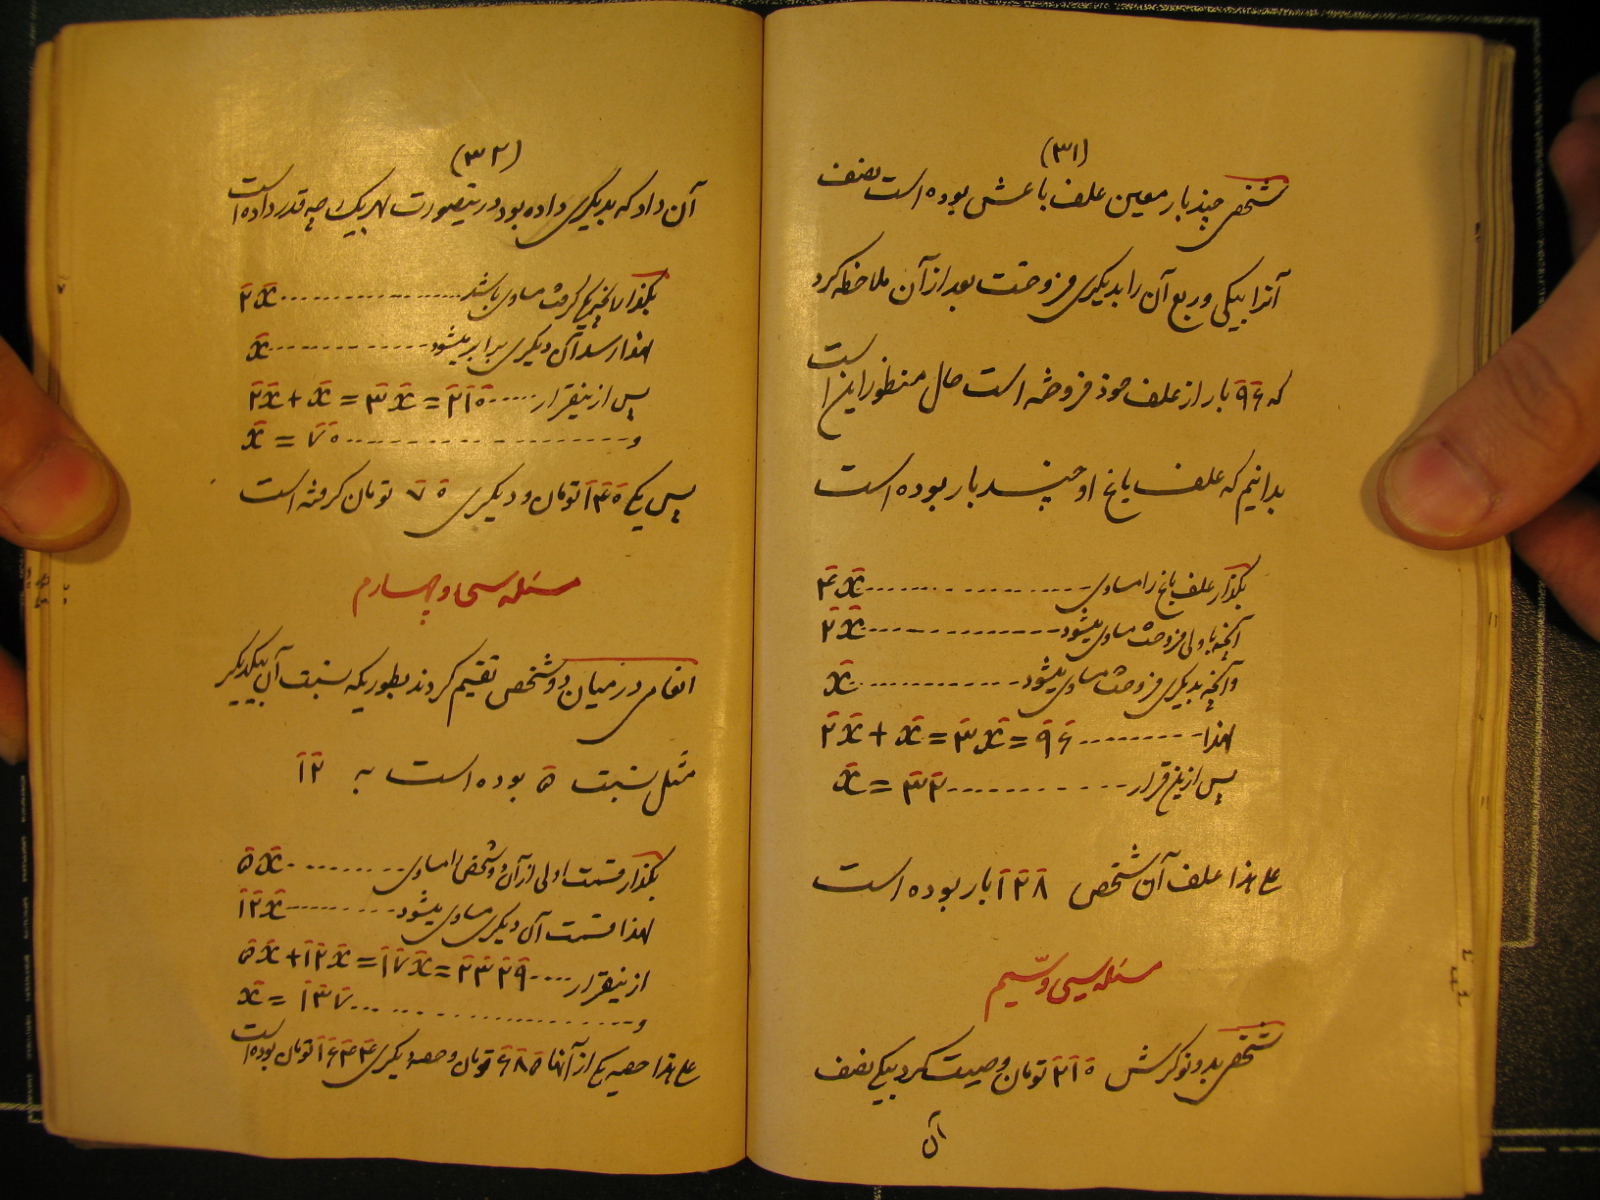 (۳۱)
شخصی چند بار معین علف باغش بوده است نصف
آنرا بیکی و ربع آن را بدیگری فروخت بعد از آن ملاحظه کرد
که ۹۶ بار از علف خود فروخته است حال منظور این است
بدانیم که علف باغ او چند بار بوده است
بگذار علف باغ را مساوی ............ ۴x
آنچه باولی فروخت مساوی میشود ............ ۲x
و آنچه بدیگری فروخت مساوی میشود ............ x
لهذا ......... ۲x + x = ۳x = ۹۶
پس ازین قرار ............ x = ۳۲
علی هذا علف آن شخص ۱۲۸ بار بوده است
مسئله سی و سیم
شخصی بدو نوکرش ۲۱۰ تومان وصیت کرد بیکی نصف
آن
(۳۲)
آن داد که بدیگری داده بود درینصورت بهر یک چه قدر داده است
بگذار آنچه یکی گرفت مساوی باشد ............ ۲x
لهذا رسد آن دیگری برابر میشود ............ x
پس ازینقرار ..... ۲x + x = ۳x = ۲۱۰
و ............ x = ۷۰
پس یکی ۱۴۰ تومان و دیگری ۷۰ تومان گرفته است
مسئله سی و چهارم
انعامی در میان دو شخص تقسیم کردند بطوریکه نسبت آن بیکدیگر
مثل نسبت ۵ بوده است به ۱۲
بگذار قسمت اولی از آن دو شخص را مساوی ......... ۵x
لهذا قسمت آن دیگری مساوی میشود ......... ۱۲x
ازینقرار .... ۵x + ۱۲x = ۱۷x = ۲۳۲۹
و ............ x = ۱۳۷
علی هذا حصه یکی از آنها ۶۸۵ تومان و حصه دیگری ۱۶۴۴ تومان بوده است